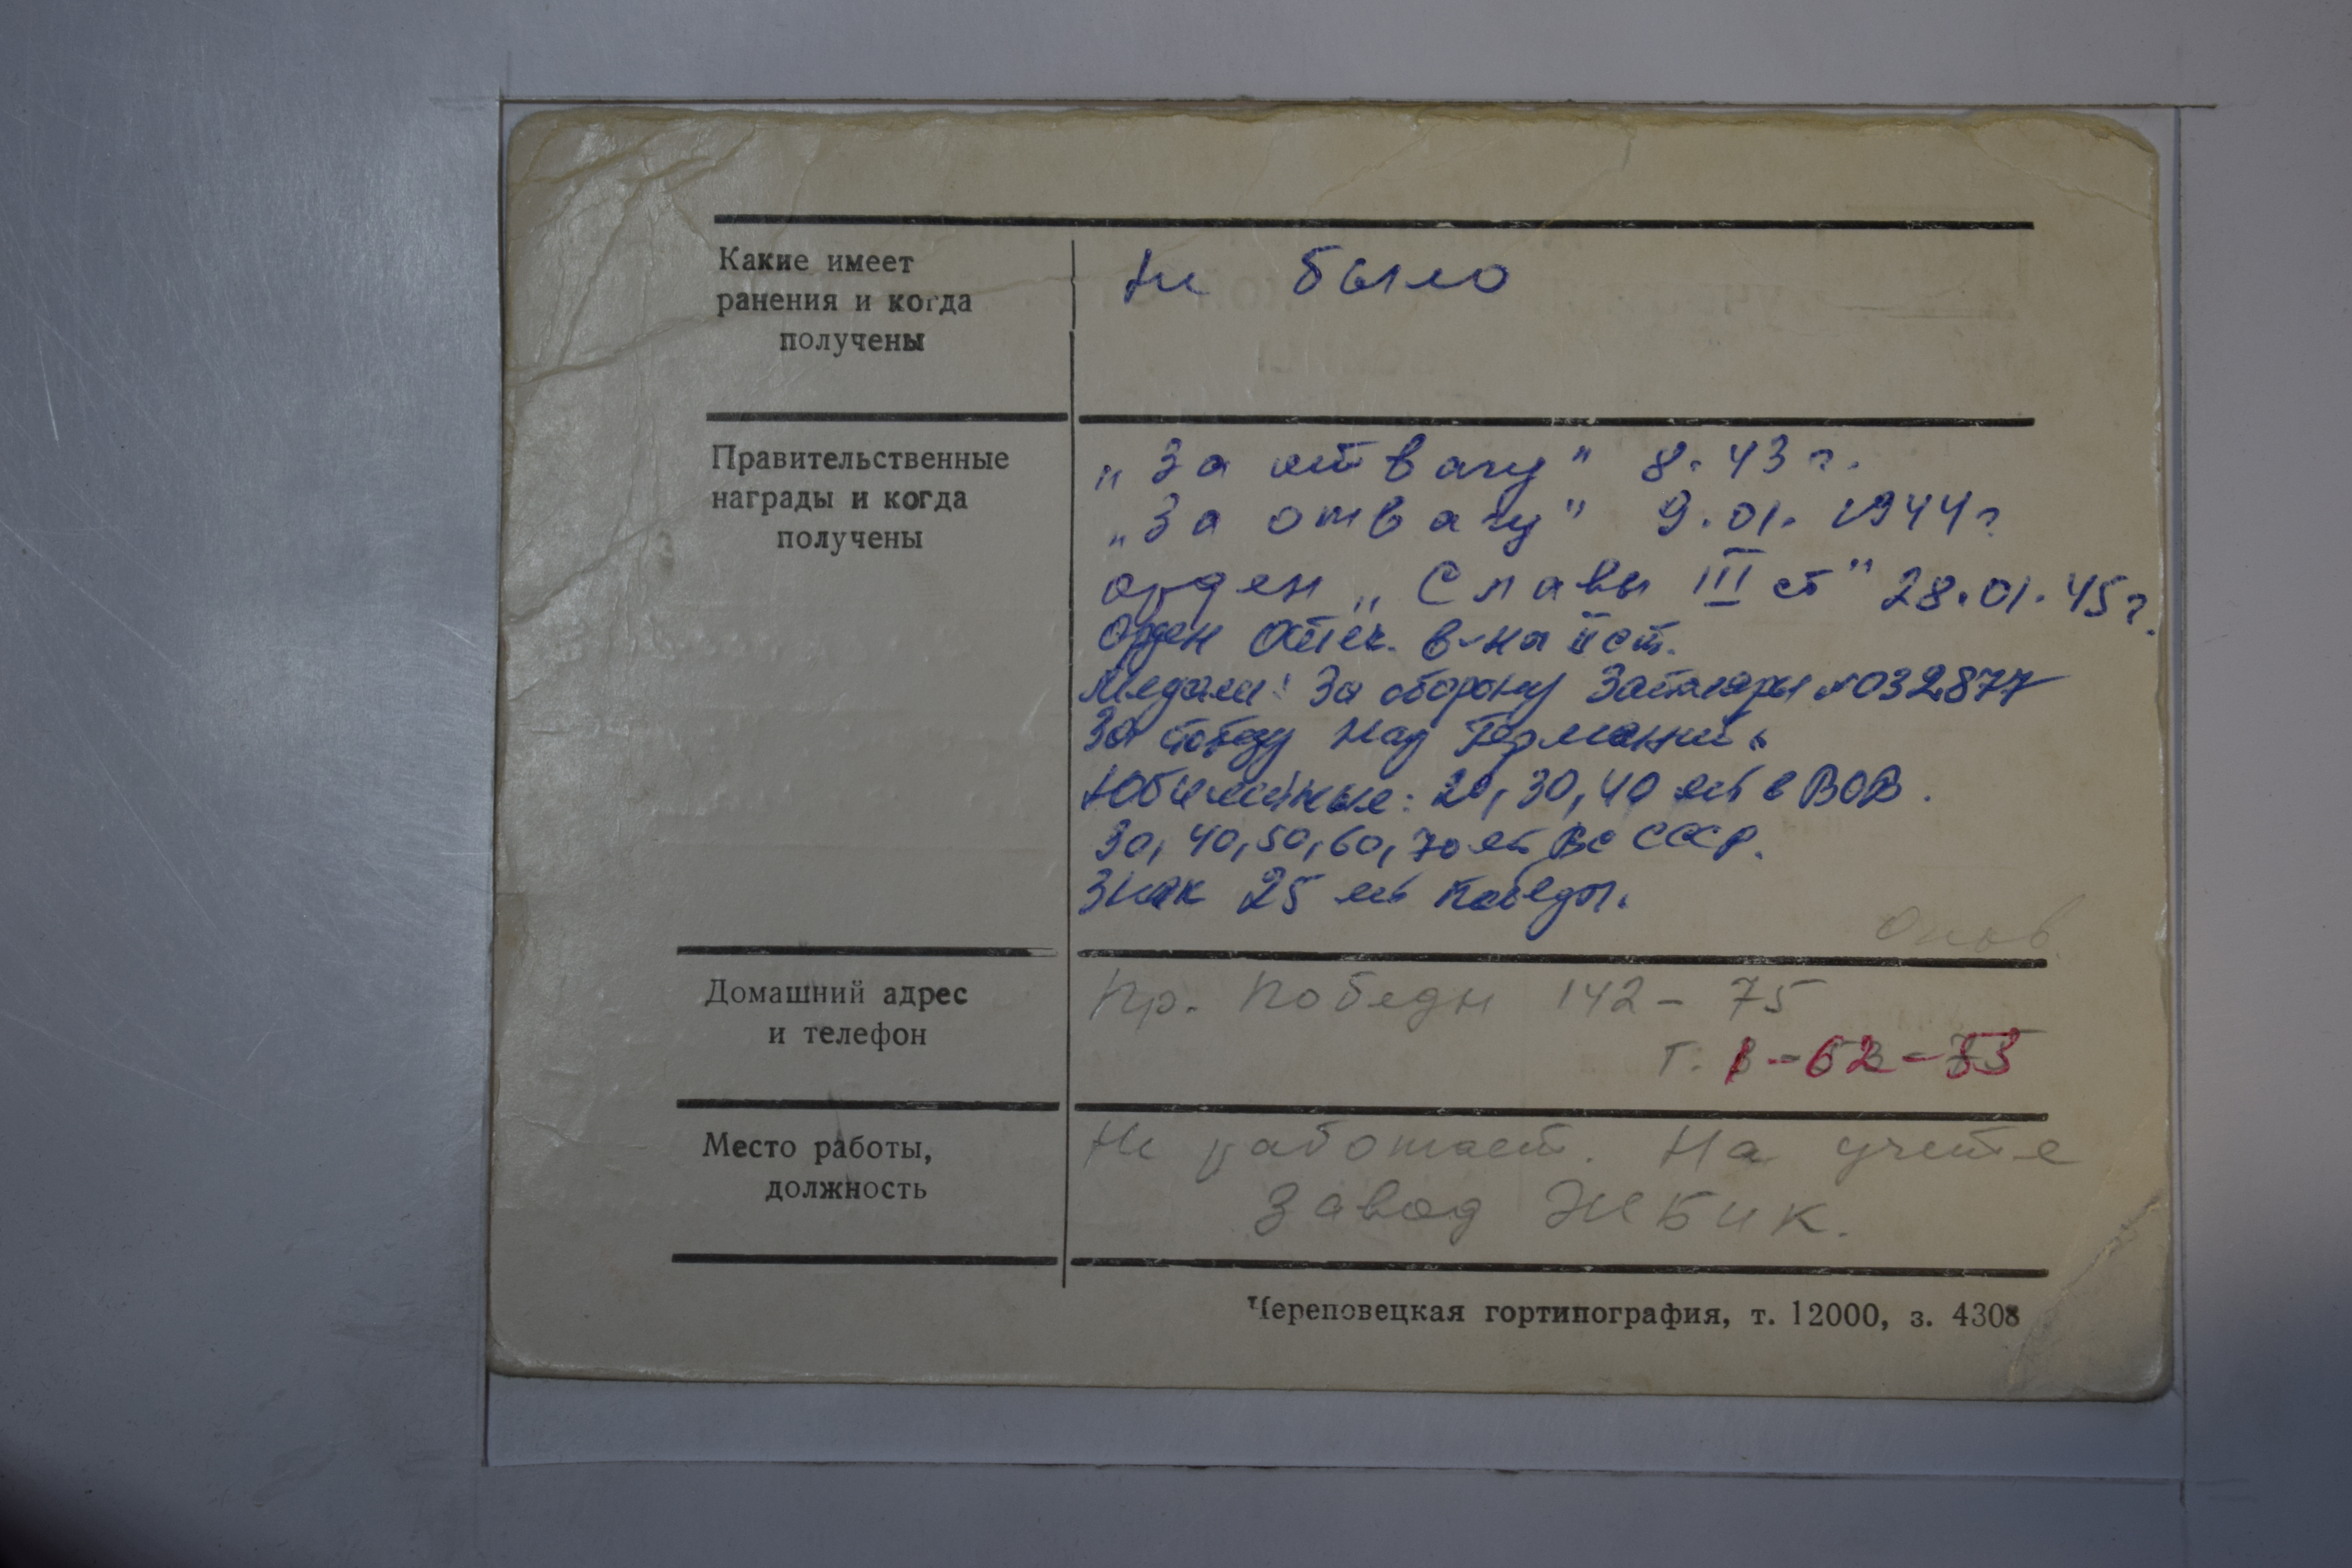 Какие имеет
ранения и когда
получены
Не было
Правительственные
награды и когда
получены
„За отвагу" 8.43 г.
„За отвагу" 9.01.1944 г
орден „Славы III ст" 28.01.45 г.
Орден Отеч. в-ны II ст.
Медали: За оборону Заполярья №032877
За победу над Германией
Юбилейные: 20, 30, 40 лет в ВОВ.
30, 40, 50, 60, 70 лет ВС СССР.
Знак 25 лет Победы.
Домашний адрес
и телефон
Пр. Победы 142 - 75
т.
Место работы,
должность
Не работает. На учете
Завод ЖБиК.
Череповецкая гортипография, т. 12000, з. 4308